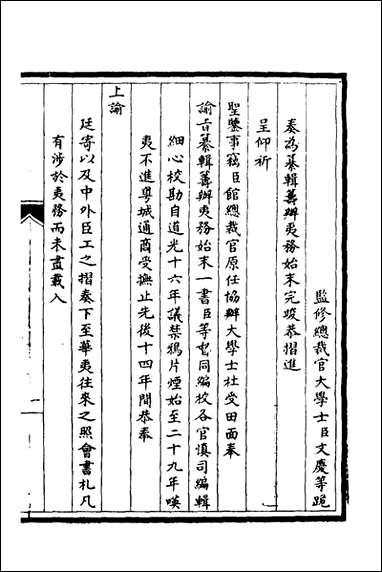 監修總裁官大學士臣文慶等跪
奏為纂輯籌辦夷務始末完竣恭摺進
呈仰祈
聖鑒事竊臣館總裁官原任協辦大學士杜受田面奉
諭旨纂輯籌辦夷務始末一書臣等督同編校各官慎司編輯
細心校勘自道光十六年議禁鴉片煙始至二十九年嘆
夷不進粵城通商受撫止先後十四年間恭奉
上諭
廷寄以及中外臣工之摺奏下至華夷往來之照會書札凡
有涉於夷務而未盡載入
一